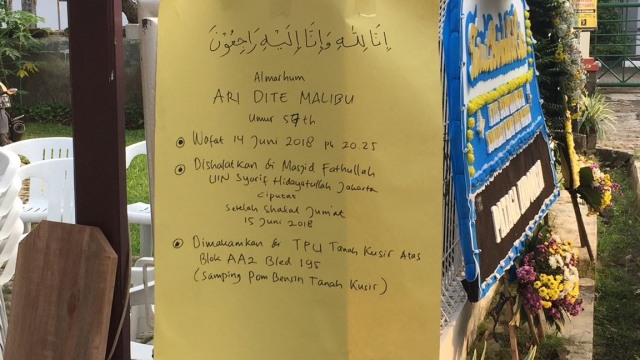 إِنَّا لِلّٰهِ وَإِنَّا إِلَيْهِ رَاجِعُوْنَ
Almarhum
ARI DITE MALIBU
Umur 57th
Wafat 14 Juni 2018 pk 20.25
Dishalatkan di Masjid Fathullah
UIN Syarif Hidayatullah Jakarta
Ciputat
Setelah Shalat Jum'at
15 Juni 2018
Dimakamkan di TPU Tanah Kusir Atas
Blok AA2 Bled 195
(Samping Pom Bensin Tanah Kusir)